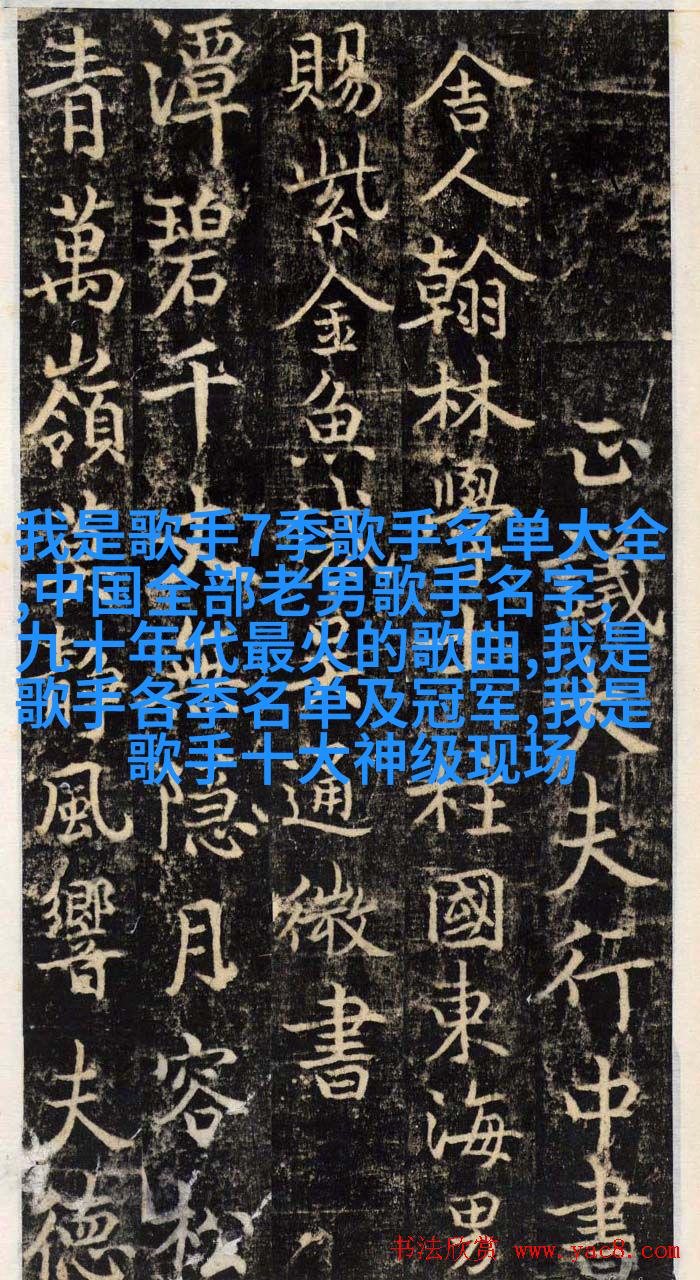 正議大夫行中書
舍人翰林學士柱國東海男
賜紫金魚袋吴通微書
潭碧千丈無隐月容松
青萬嶺風響夫德
我是歌手7季歌手名单大全
,中国全部老男歌手名字,
九十年代最火的歌曲,我是
歌手各季名单及冠军,我是
歌手十大神级现场
书法欣赏 www.yac8.com